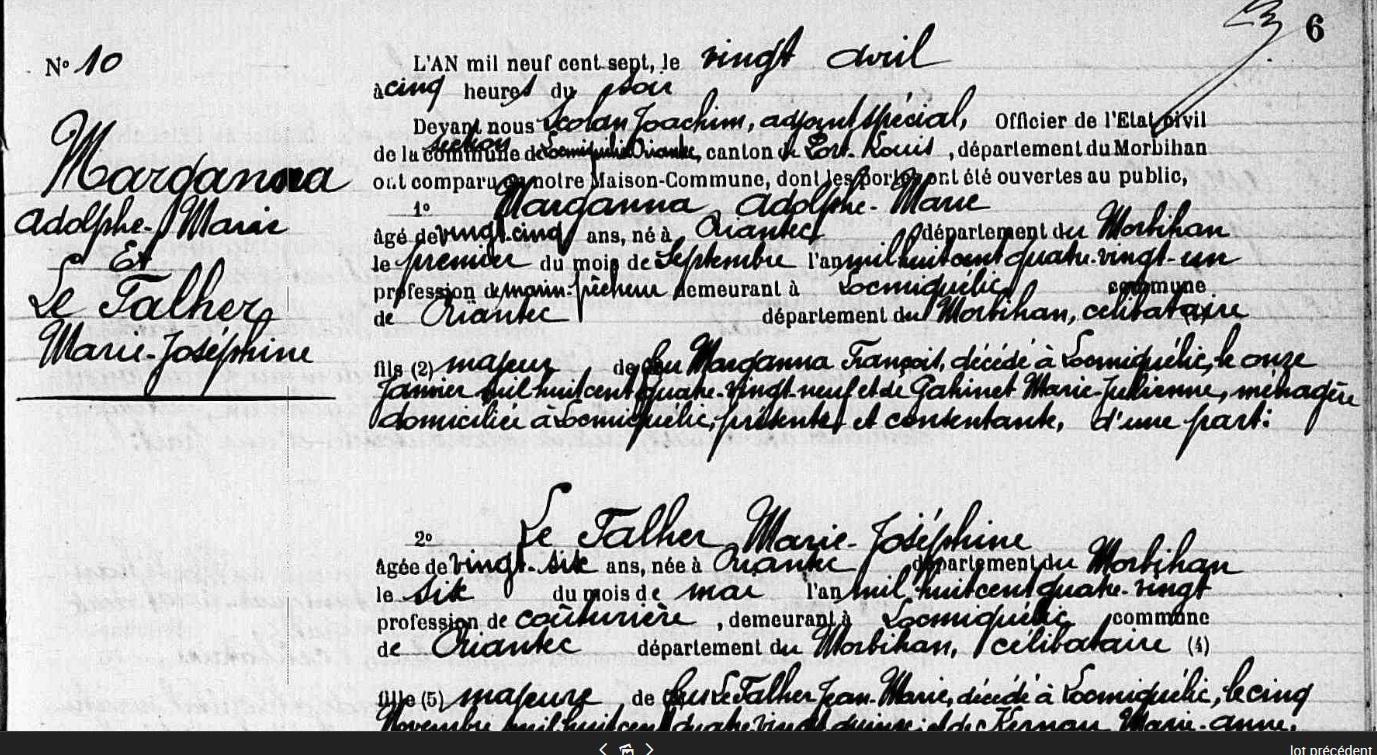 6
N° 10
Marganna
Adolphe-Marie
Et
Le Talher
Marie-Joséphine
L'AN mil neuf cent sept, le vingt avril
à cinq heures du soir
Devant nous Scolan Joachim, adjoint spécial, Officier de l'Etat civil
section
de la commune de Locmiquélic Riantec, canton de Port-Louis, département du Morbihan
ont comparu en notre Maison-Commune, dont les portes ont été ouvertes au public,
1° Marganna Adolphe-Marie
âgé de vingt-cinq ans, né à Riantec département du Morbihan
le premier du mois de Septembre l'an mil huit cent quatre-vingt-un
profession de marin-pêcheur demeurant à Locmiquélic commune
de Riantec département du Morbihan, célibataire
fils (2) majeur de feu Marganna François, décédé à Locmiquélic, le onze
Janvier mil huit cent quatre-vingt-neuf et de Gahinet Marie-Julienne, ménagère
domiciliée à Locmiquélic, présente et consentante, d'une part:
2° Le Talher Marie-Joséphine
âgée de vingt-six ans, née à Riantec département du Morbihan
le six du mois de mai l'an mil huit cent quatre-vingt
profession de couturière, demeurant à Locmiquélic commune
de Riantec département du Morbihan, célibataire (4)
fille (5) majeure de feu Le Talher Jean-Marie, décédé à Locmiquélic, le cinq
Novembre mil huit cent quatre-vingt-quinze et de Kernan Marie-Anne,
lot précédent